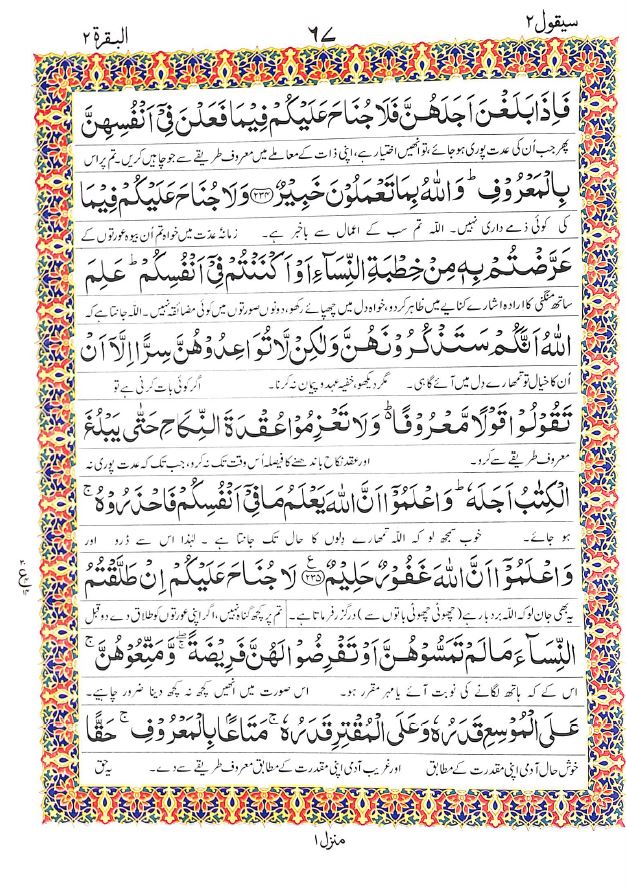 سیقول ۲
۶۷
البقرۃ ۲
فَاِذَا بَلَغْنَ اَجَلَهُنَّ فَلَا جُنَاحَ عَلَيْكُمْ فِيْمَا فَعَلْنَ فِيْٓ اَنْفُسِهِنَّ
پھر جب اُن کی عدت پوری ہو جائے، تو اُنھیں اختیار ہے، اپنی ذات کے معاملے میں معروف طریقے سے جو چاہیں کریں۔ تم پر اس
بِالْمَعْرُوْفِ ؕ وَاللّٰهُ بِمَا تَعْمَلُوْنَ خَبِيْرٌ ﴿۲۳۴﴾ وَلَا جُنَاحَ عَلَيْكُمْ فِيْمَا
کی کوئی ذمے داری نہیں۔ اللہ تم سب کے اعمال سے باخبر ہے۔ زمانۂ عدّت میں خواہ تم اُن بیوہ عورتوں کے
عَرَّضْتُمْ بِهٖ مِنْ خِطْبَةِ النِّسَآءِ اَوْ اَكْنَنْتُمْ فِيْٓ اَنْفُسِكُمْ ؕ عَلِمَ
ساتھ منگنی کا ارادہ اشارے کنایے میں ظاہر کر دو، خواہ دل میں چھپائے رکھو، دونوں صورتوں میں کوئی مضائقہ نہیں۔ اللہ جانتا ہے کہ
اللّٰهُ اَنَّكُمْ سَتَذْكُرُوْنَهُنَّ وَلٰكِنْ لَّا تُوَاعِدُوْهُنَّ سِرًّا اِلَّآ اَنْ
اُن کا خیال تو تمھارے دل میں آئے گا ہی۔ مگر دیکھو، خفیہ عہد و پیمان نہ کرنا۔ اگر کوئی بات کرنی ہے تو
تَقُوْلُوْا قَوْلًا مَّعْرُوْفًا ؕ وَلَا تَعْزِمُوْا عُقْدَةَ النِّكَاحِ حَتّٰى يَبْلُغَ
معروف طریقے سے کرو۔ اور عقدِ نکاح باندھنے کا فیصلہ اُس وقت تک نہ کرو، جب تک کہ عدت پوری نہ
الْكِتٰبُ اَجَلَهٗ ؕ وَاعْلَمُوْٓا اَنَّ اللّٰهَ يَعْلَمُ مَا فِيْٓ اَنْفُسِكُمْ فَاحْذَرُوْهُ ۚ
ہو جائے۔ خوب سمجھ لو کہ اللہ تمھارے دِلوں کا حال تک جانتا ہے ۔ لہٰذا اس سے ڈرو اور
وَاعْلَمُوْٓا اَنَّ اللّٰهَ غَفُوْرٌ حَلِيْمٌ ﴿۲۳۵﴾ ع لَا جُنَاحَ عَلَيْكُمْ اِنْ طَلَّقْتُمُ
یہ بھی جان لو کہ اللہ بردبار ہے (چھوٹی چھوٹی باتوں سے) درگزر فرماتا ہے۔ تم پر کچھ گناہ نہیں، اگر اپنی عورتوں کو طلاق دے دو قبل
النِّسَآءَ مَا لَمْ تَمَسُّوْهُنَّ اَوْ تَفْرِضُوْا لَهُنَّ فَرِيْضَةً ۖۚ وَّمَتِّعُوْهُنَّ ۚ
اس کے کہ ہاتھ لگانے کی نوبت آئے یا مہر مقرر ہو۔ اس صورت میں انھیں کچھ نہ کچھ دینا ضرور چاہیے۔
عَلَى الْمُوْسِعِ قَدَرُهٗ وَعَلَى الْمُقْتِرِ قَدَرُهٗ ۚ مَتَاعًا بِالْمَعْرُوْفِ ۚ حَقًّا
خوش حال آدمی اپنی مقدرت کے مطابق اور غریب آدمی اپنی مقدرت کے مطابق معروف طریقے سے دے۔ یہ حق
منزل ۱